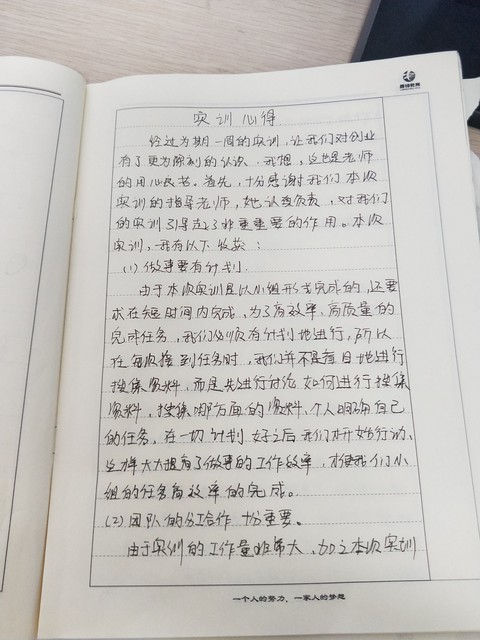 实训心得
经过为期一周的实训,让我们对创业
有了更为深刻的认识。我想,这也是老师
的用心良苦。首先,十分感谢我们本次
实训的指导老师,她认真负责,对我们
的实训引导起了非重重要的作用。本次
实训,我有以下收获:
(1)做事要有计划.
由于本次实训是以小组形式完成的,还要
求在短时间内完成,为了高效率、高质量的
完成任务,我们必须有计划地进行,所以
在每次接到任务时,我们并不是盲目地进行
搜集资料,而是先进行讨论如何进行搜集
资料,搜集哪方面的资料,个人明确自己
的任务,在一切计划好之后我们才开始行动、
这样大大提高了做事的工作效率,才使我们小
组的任务高效率的完成。
(2)团队的分工合作十分重要。
由于实训的工作量非常大,加之本次实训
一个人的努力、一家人的梦想